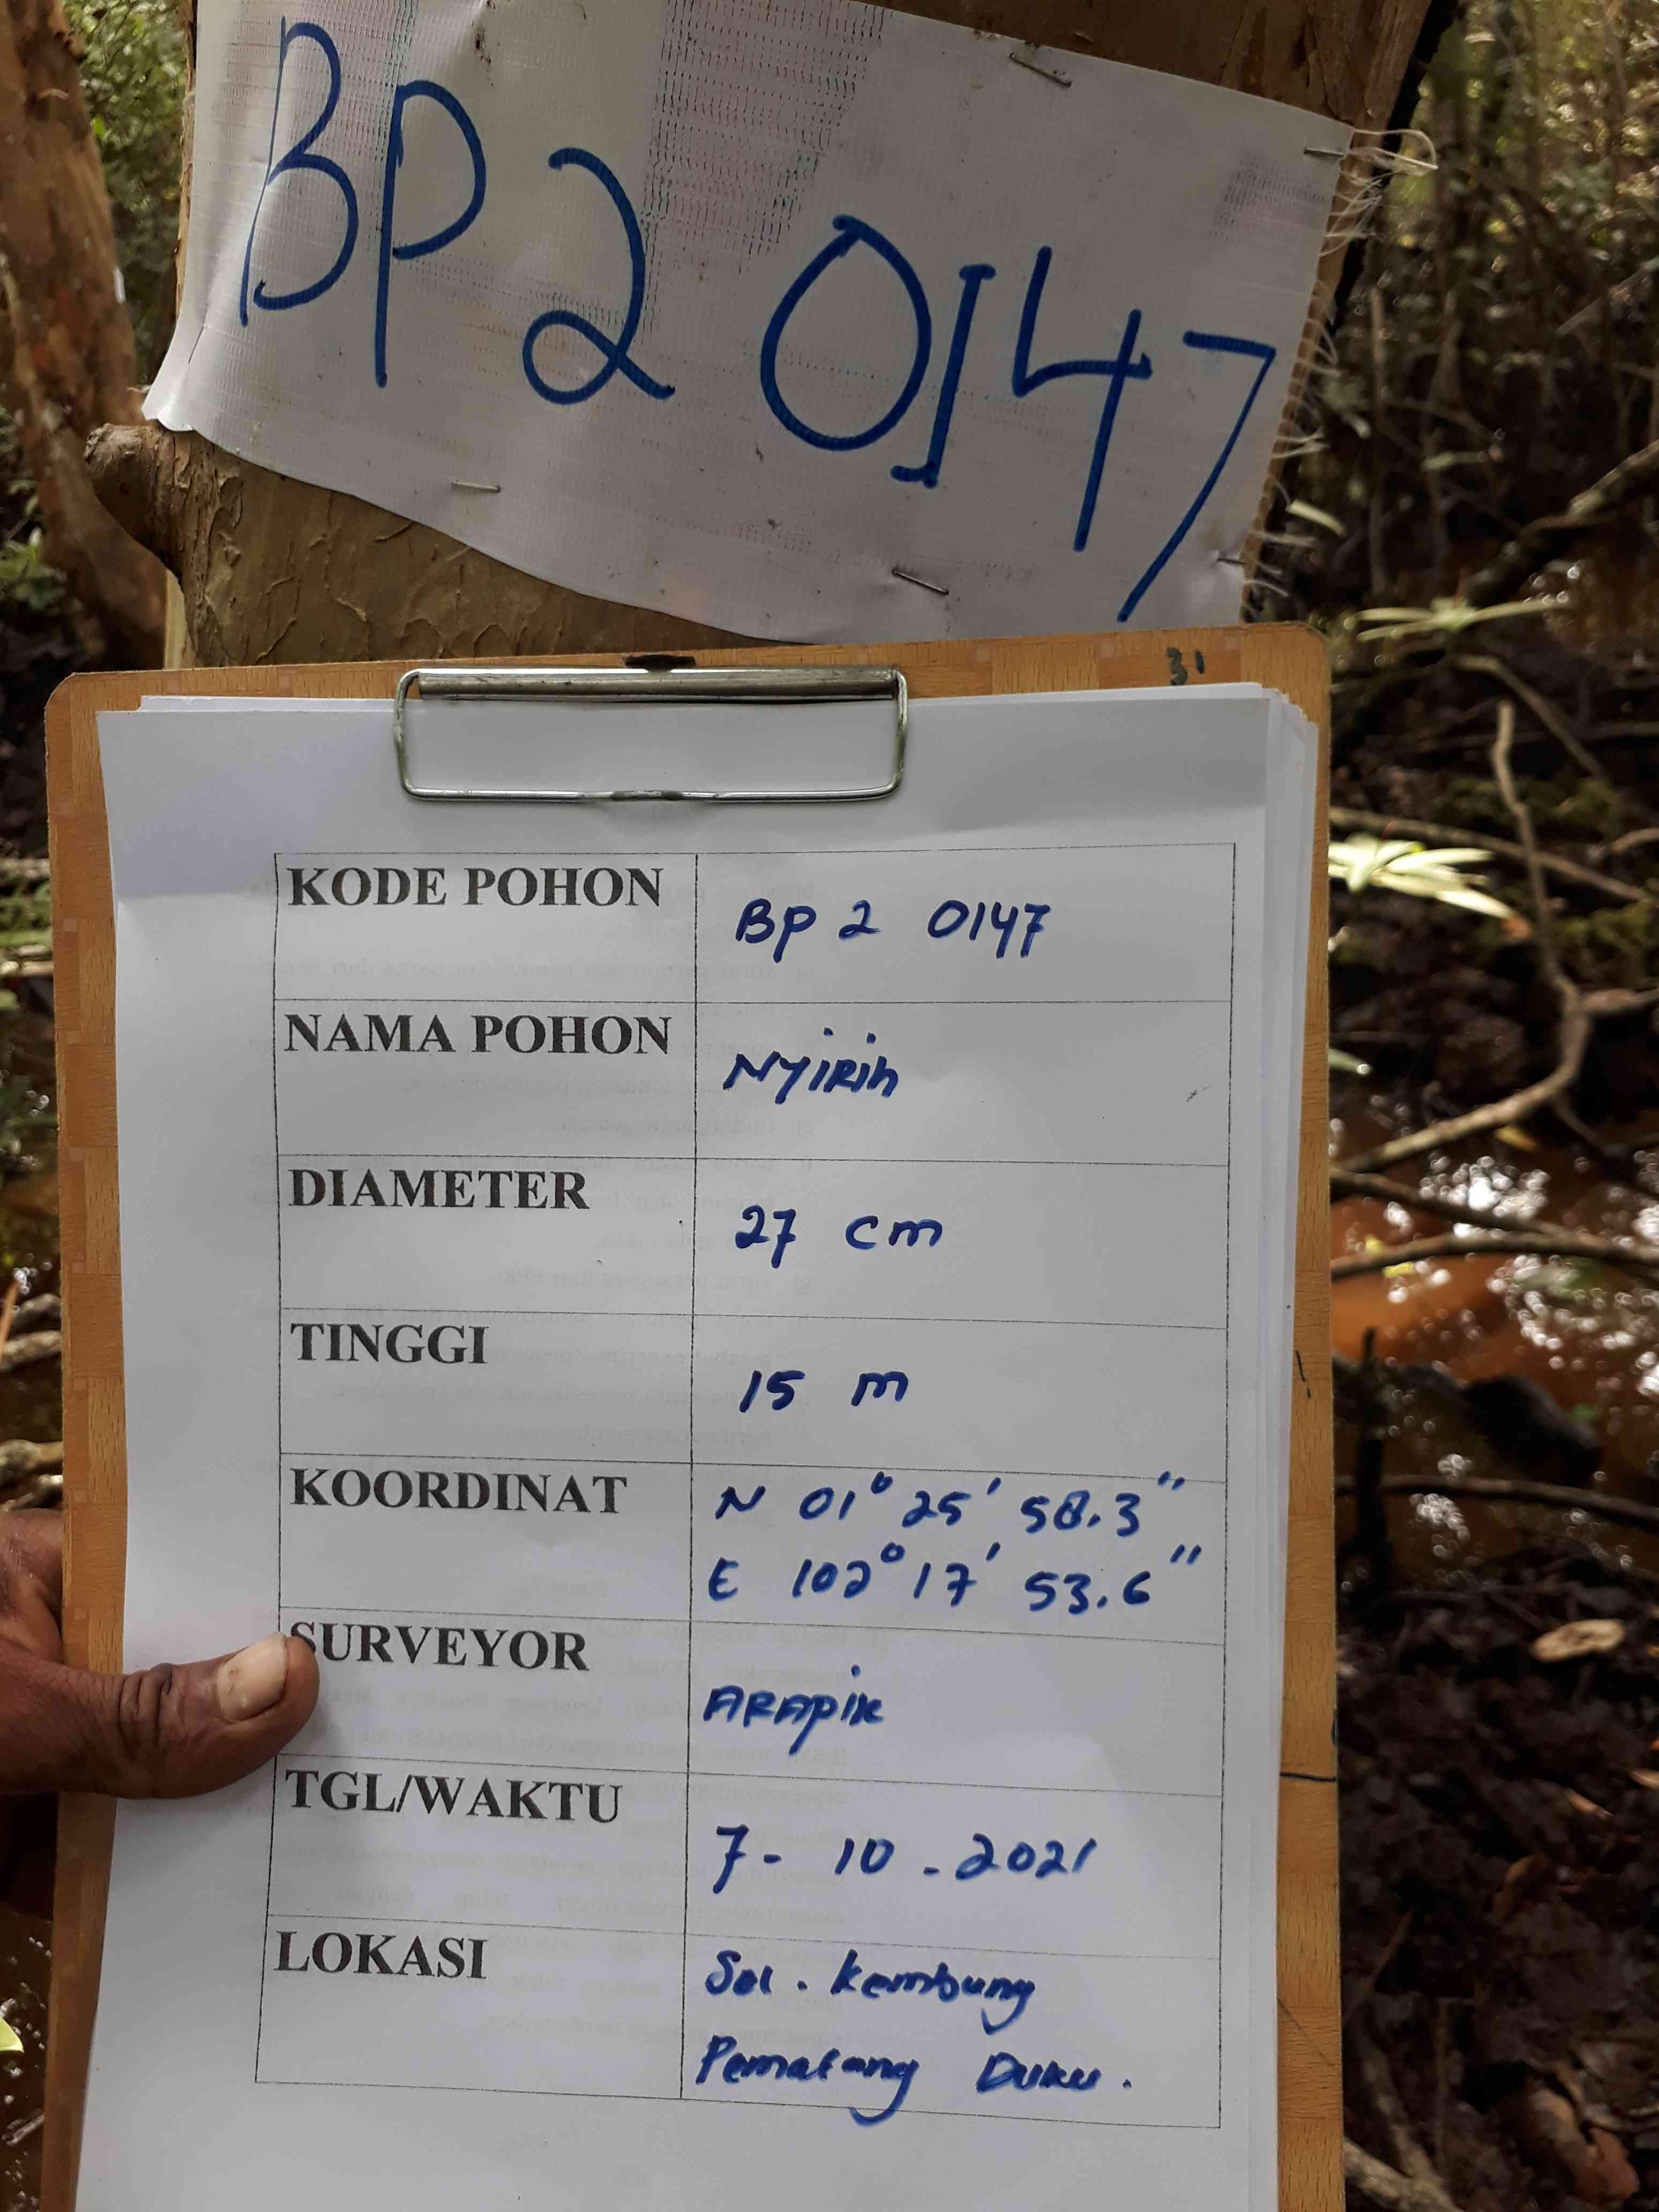 BP2 0147
31
KODE POHON
BP 2 0147
NAMA POHON
NYiRih
DIAMETER
27 cm
TINGGI
15 m
KOORDINAT
N 01° 25' 58.3"
E 102° 17' 53.6"
SURVEYOR
ARApik
TGL/WAKTU
7 - 10 - 2021
LOKASI
Sei. Kembung
Pematang Duku.